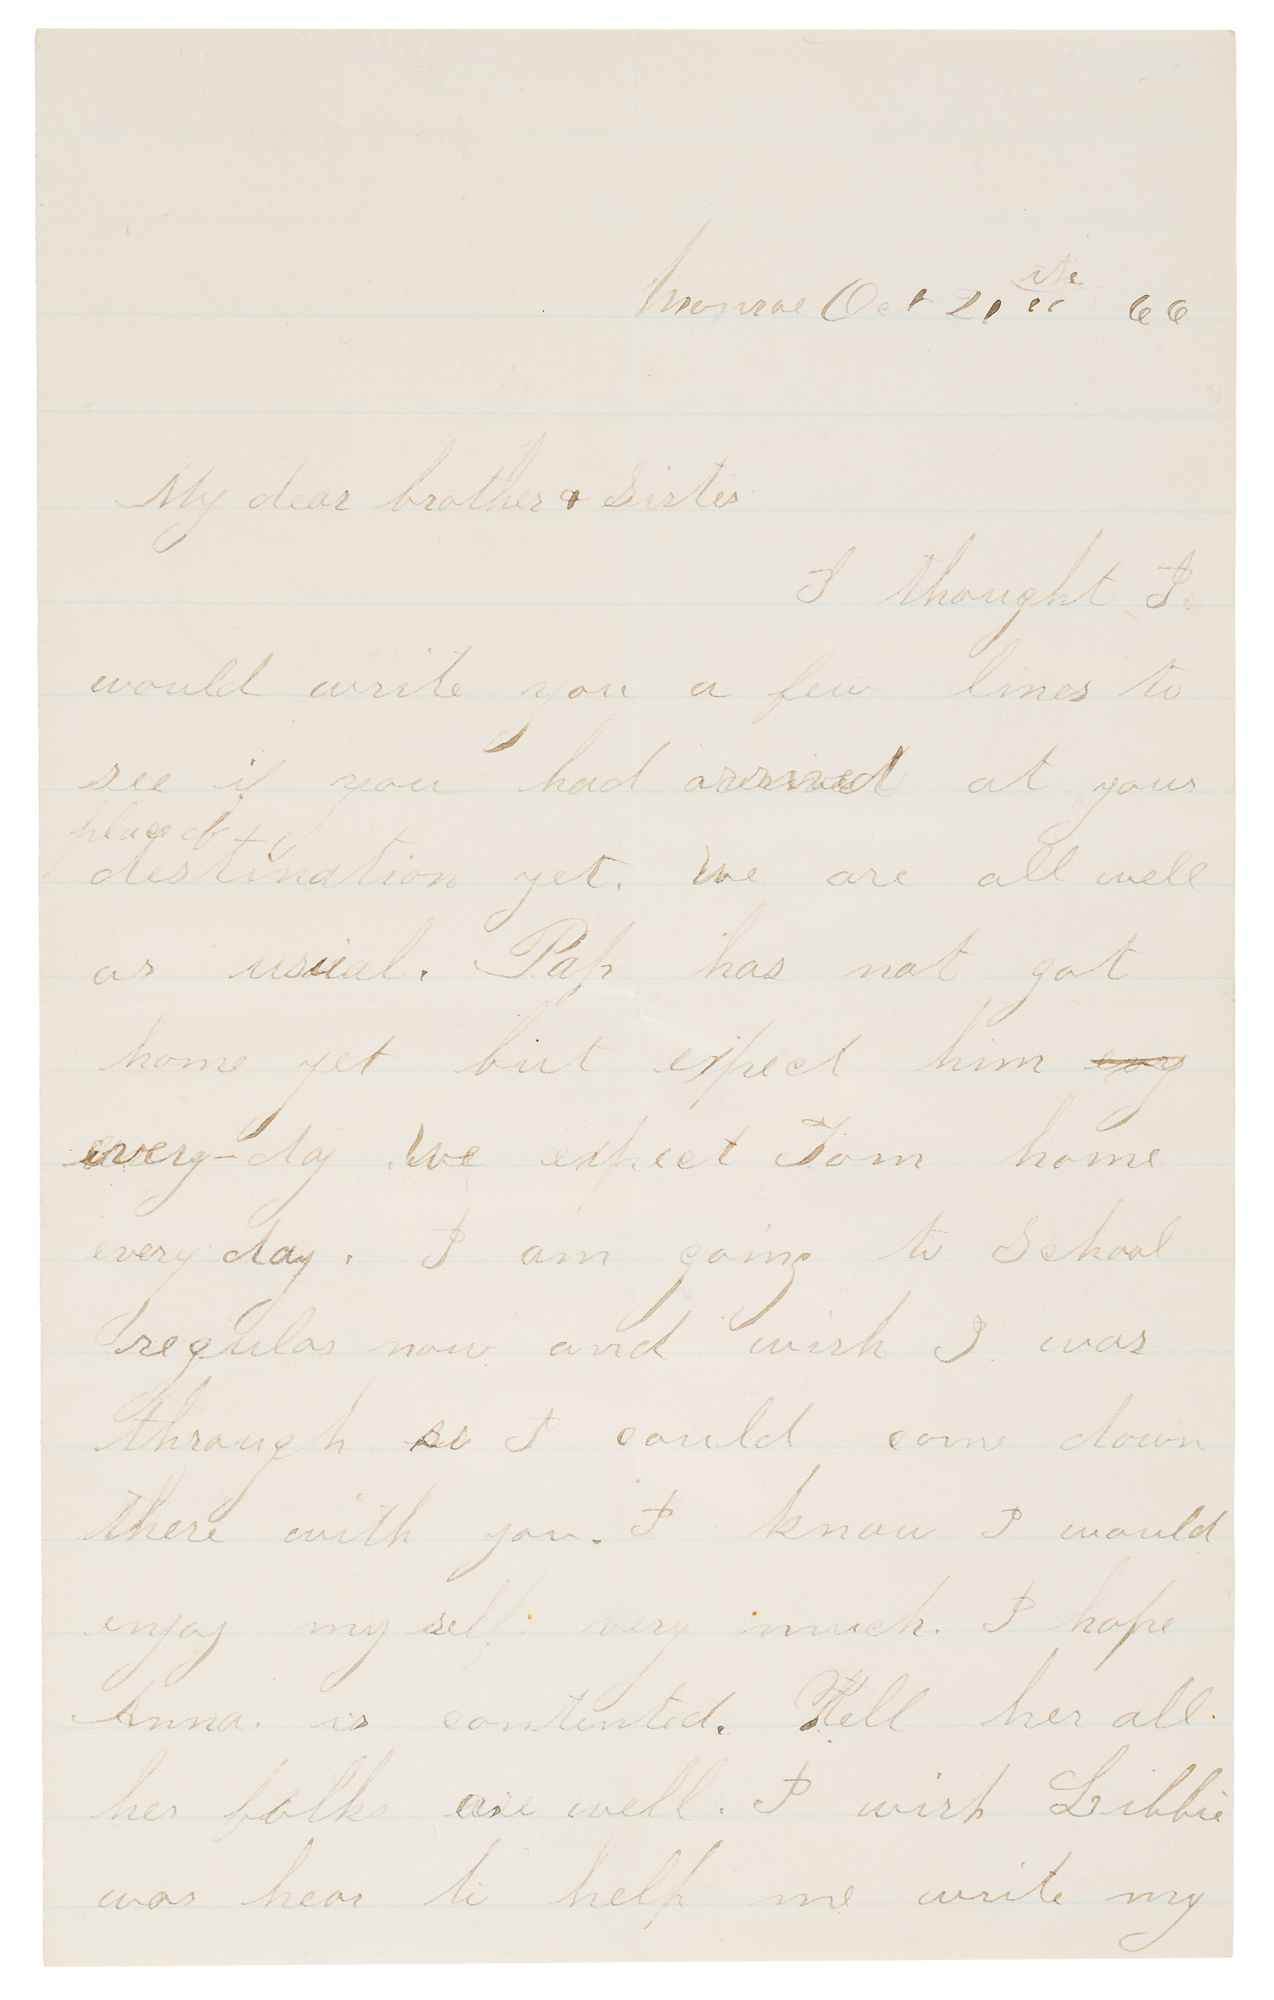 Monroe Oct 21 66
My dear brother & Sister
I thought I
would write you a few lines to
see if you had arrived at your
place of
destination yet. We are all well
as usual. Pap has not got
home yet but expect him
every-day We expect Tom home
every day. I am going to School
regular now and wish I was
through so I could come down
there with you. I know I would
enjoy my self very much. I hope
Anna. is contented. Tell her all
her folks are well. I wish Libbie
was hear to help me write my